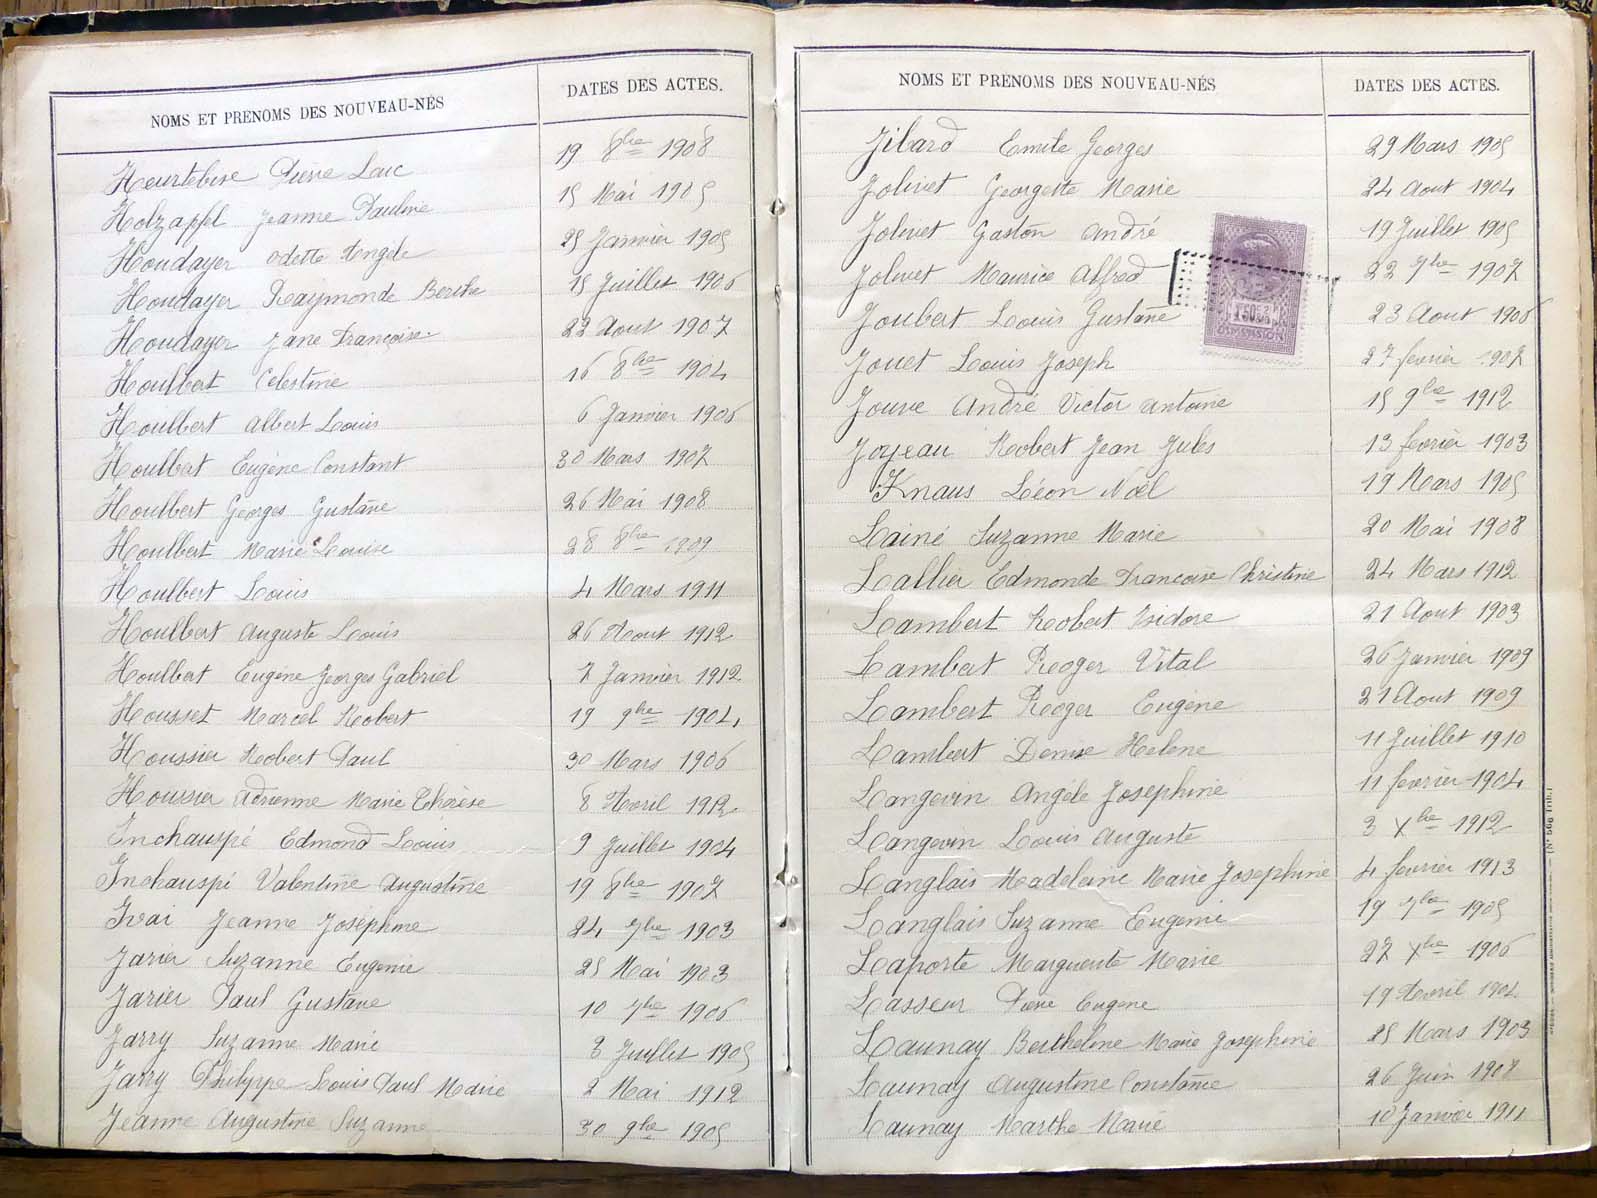 NOMS ET PRENOMS DES NOUVEAU-NÉS DATES DES ACTES.
Heurtebise Pierre Luc 19 8bre 1908
Holzapfel Jeanne Pauline 15 Mai 1905
Houdayer Odette Angèle 25 Janvier 1905
Houdayer Raymonde Berthe 15 Juillet 1906
Houdayer Jane Françoise 22 Aout 1907
Houlbert Celestine 16 8bre 1904
Houlbert Albert Louis 6 Janvier 1906
Houlbert Eugène Constant 30 Mars 1907
Houlbert Georges Gustave 26 Mai 1908
Houlbert Marie Louise 28 8bre 1909
Houlbert Louis 4 Mars 1911
Houlbert Auguste Louis 26 Aout 1912
Houlbert Eugène Georges Gabriel 7 Janvier 1912
Housset Marcel Robert 19 9bre 1904
Houssier Robert Paul 30 Mars 1906
Houssier Adrienne Marie Thérèse 8 Avril 1912
Inchauspé Edmond Louis 9 Juillet 1904
Inchauspé Valentine Augustine 19 8bre 1907
Ivai Jeanne Joséphine 24 7bre 1903
Jarier Suzanne Eugenie 25 Mai 1903
Jarier Paul Gustave 10 7bre 1906
Jarry Suzanne Marie 3 Juillet 1905
Jarry Philippe Louis Paul Marie 2 Mai 1912
Jeanne Augustine Suzanne 30 9bre 1905
NOMS ET PRENOMS DES NOUVEAU-NÉS DATES DES ACTES.
Jibard Emile Georges 29 Mars 1905
Jolivet Georgette Marie 24 Aout 1904
Jolivet Gaston André 19 Juillet 1905
Jolivet Maurice Alfred 22 7bre 1907
Joubert Louis Gustave 23 Aout 1906
Jouet Louis Joseph 27 fevrier 1907
Jouve André Victor Antoine 15 9bre 1912
Joyeau Robert Jean Jules 13 fevrier 1903
Knaus Léon Noël 19 Mars 1905
Lainé Suzanne Marie 20 Mai 1908
Lallier Edmonde Francoise Christine 24 Mars 1912
Lambert Robert Isidore 21 Aout 1903
Lambert Roger Vital 26 Janvier 1909
Lambert Roger Eugène 21 Aout 1909
Lambert Denise Helene 11 Juillet 1910
Langevin Angéle Josephine 11 fevrier 1904
Langevin Louis Auguste 3 Xbre 1912
Langlais Madeleine Marie Josephine 4 fevrier 1913
Langlais Suzanne Eugenie 19 7bre 1905
Laporte Marguerite Marie 27 Xbre 1906
Lasseur Pierre Eugene 19 Avril 1904
Launay Bertheline Marie Josephine 25 Mars 1903
Launay Augustine Constance 26 Juin 1907
Launay Marthe Marie 10 Janvier 1911